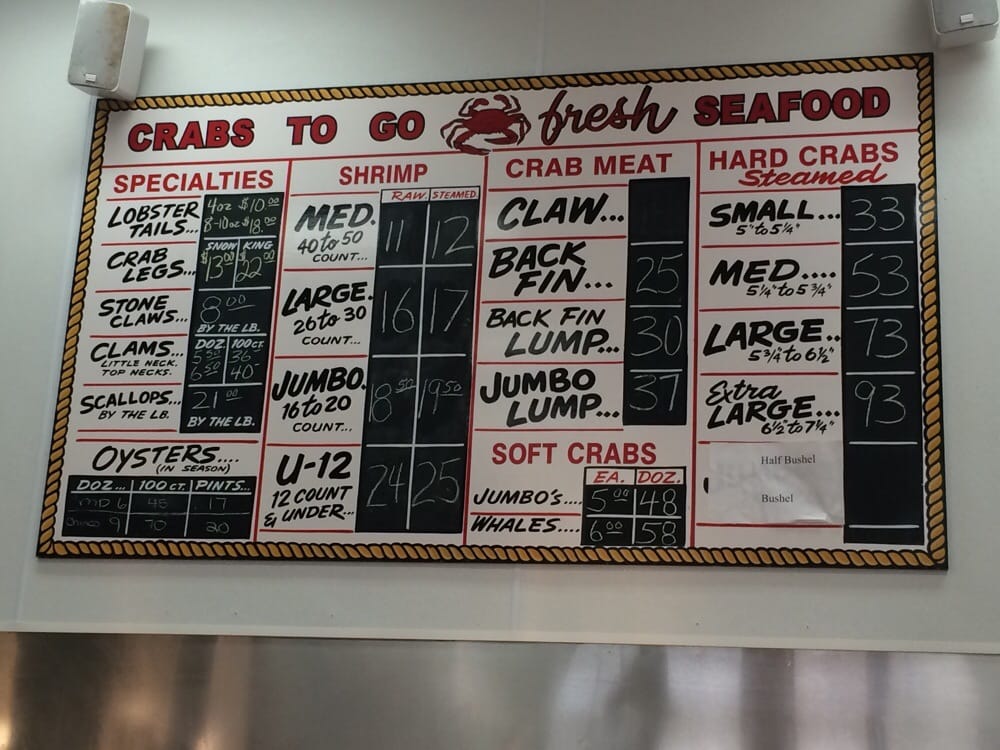 CRABS TO GO fresh SEAFOOD
SPECIALTIES
LOBSTER TAILS... 4oz $10.00
8-10oz $18.00
CRAB LEGS... SNOW KING
$13.00 $22.00
STONE CLAWS... 8.00
BY THE LB.
CLAMS... DOZ 100CT.
LITTLE NECK. 5.50 36
TOP NECKS. 6.50 40
SCALLOPS... 21.00
BY THE LB. BY THE LB.
OYSTERS....
(IN SEASON)
DOZ... 100 CT. PINTS...
MD 6 45 17
9 70 20
SHRIMP
RAW. STEAMED
MED. 11 12
40 to 50
COUNT...
LARGE. 16 17
26 to 30
COUNT...
JUMBO. 18.50 19.50
16 to 20
COUNT...
U-12 24 25
12 COUNT
& UNDER...
CRAB MEAT
CLAW...
BACK FIN... 25
BACK FIN LUMP... 30
JUMBO LUMP... 37
SOFT CRABS
EA. DOZ.
JUMBO'S.... 5.00 48
WHALES.... 6.00 58
HARD CRABS
Steamed
SMALL... 33
5" to 5 1/4"
MED.... 53
5 1/4" to 5 3/4"
LARGE... 73
5 3/4" to 6 1/2"
Extra
LARGE... 93
6 1/2" to 7 1/4"
Half Bushel
Bushel